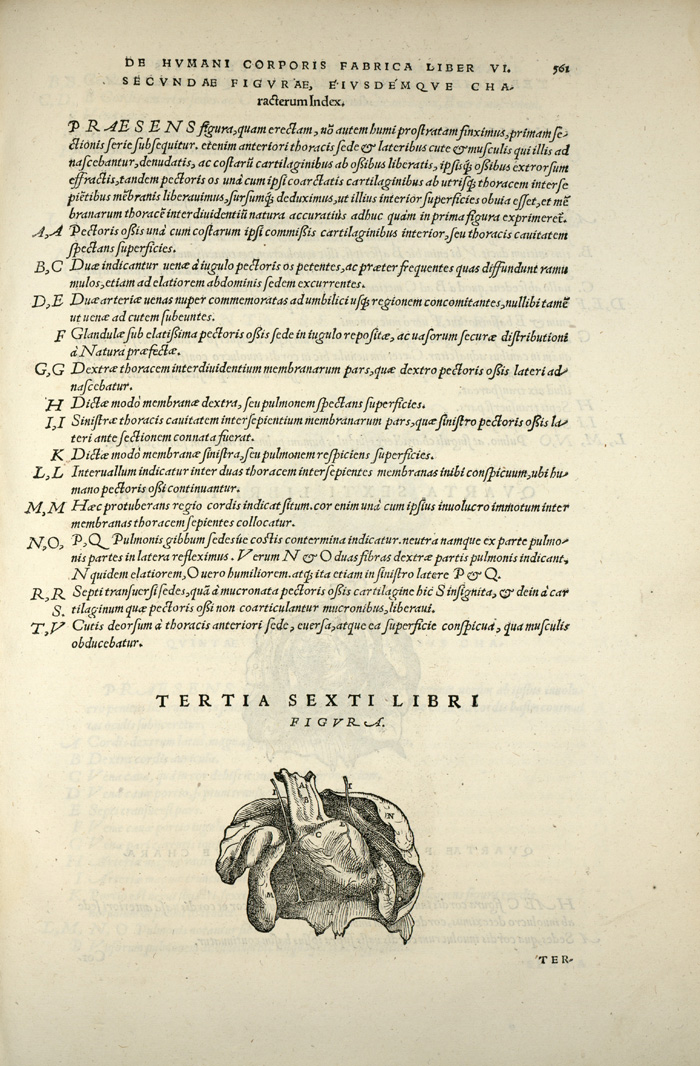 DE HVMANI CORPORIS FABRICA LIBER VI. 561
SECVNDAE FIGVRAE, EIVSDEMQVE CHA-
racterum Index.
PRAESENS figura, quam erectam, nõ autem humi prostratam finximus, primam se-
ctionis serie subsequitur. etenim anteriori thoracis sede & lateribus cute & musculis qui illis ad
nascebantur, denudatis, ac costarũ cartilaginibus ab oßibus liberatis, ipsisq́ oßibus extrorsum
effractis, tandem pectoris os unà cum ipsi coarctatis cartilaginibus ab utrisq́ thoracem interse
pientibus mẽbranis liberauimus, sursumq́ deduximus, ut illius interior superficies obuia esset, et mẽ
branarum thoracẽ interdiuidentiũ natura accuratiùs adhuc quàm in prima figura exprimeret̃.
A,A Pectoris oßis unà cum costarum ipsi commißis cartilaginibus interior, seu thoracis cauitatem
spectans superficies.
B,C Duæ indicantur uenæ à iugulo pectoris os petentes, ac præter frequentes quas diffundunt ramu
mulos, etiam ad elatiorem abdominis sedem excurrentes.
D,E Duæ arteriæ uenas nuper commemoratas ad umbilici usq́ regionem concomitantes, nullibi tamẽ
ut uenæ ad cutem subeuntes.
F Glandulæ sub elatißima pectoris oßis sede in iugulo repositæ, ac uasorum securæ distributioni
à Natura præfectæ.
G,G Dextræ thoracem interdiuidentium membranarum pars, quæ dextro pectoris oßis lateri ad-
nascebatur.
H Dictæ modò membranæ dextra, seu pulmonem spectans superficies.
I,I Sinistræ thoracis cauitatem intersepientium membranarum pars, quæ sinistro pectoris oßis la-
teri ante sectionem connata fuerat.
K Dictæ modò membranæ sinistra, seu pulmonem respiciens superficies.
L,L Interuallum indicatur inter duas thoracem intersepientes membranas inibi conspicuum, ubi hu-
mano pectoris oßi continuantur.
M,M Hæc protuberans regio cordis indicat situm. cor enim unà cum ipsius inuolucro immotum inter
membranas thoracem sepientes collocatur.
N,O, P,Q Pulmonis gibbum sedesúe costis contermina indicatur. neutra namque ex parte pulmo-
nis partes in latera refleximus. Verum N & O duas fibras dextræ partis pulmonis indicant,
N quidem elatiorem, O uero humiliorem. atq́ ita etiam in sinistro latere P & Q.
R,R Septi transuersi sedes, quã à mucronata pectoris oßis cartilagine hìc S insignita, & dein à car
S. tilaginum quæ pectoris oßi non coarticulantur mucronibus, liberaui.
T,V Cutis deorsum à thoracis anteriori sede, euersa, atque ea superficie conspicua, qua musculis
obducebatur.
TERTIA SEXTI LIBRI
FIGVRA.
A
B
C
L
M
N
H
I
TER-